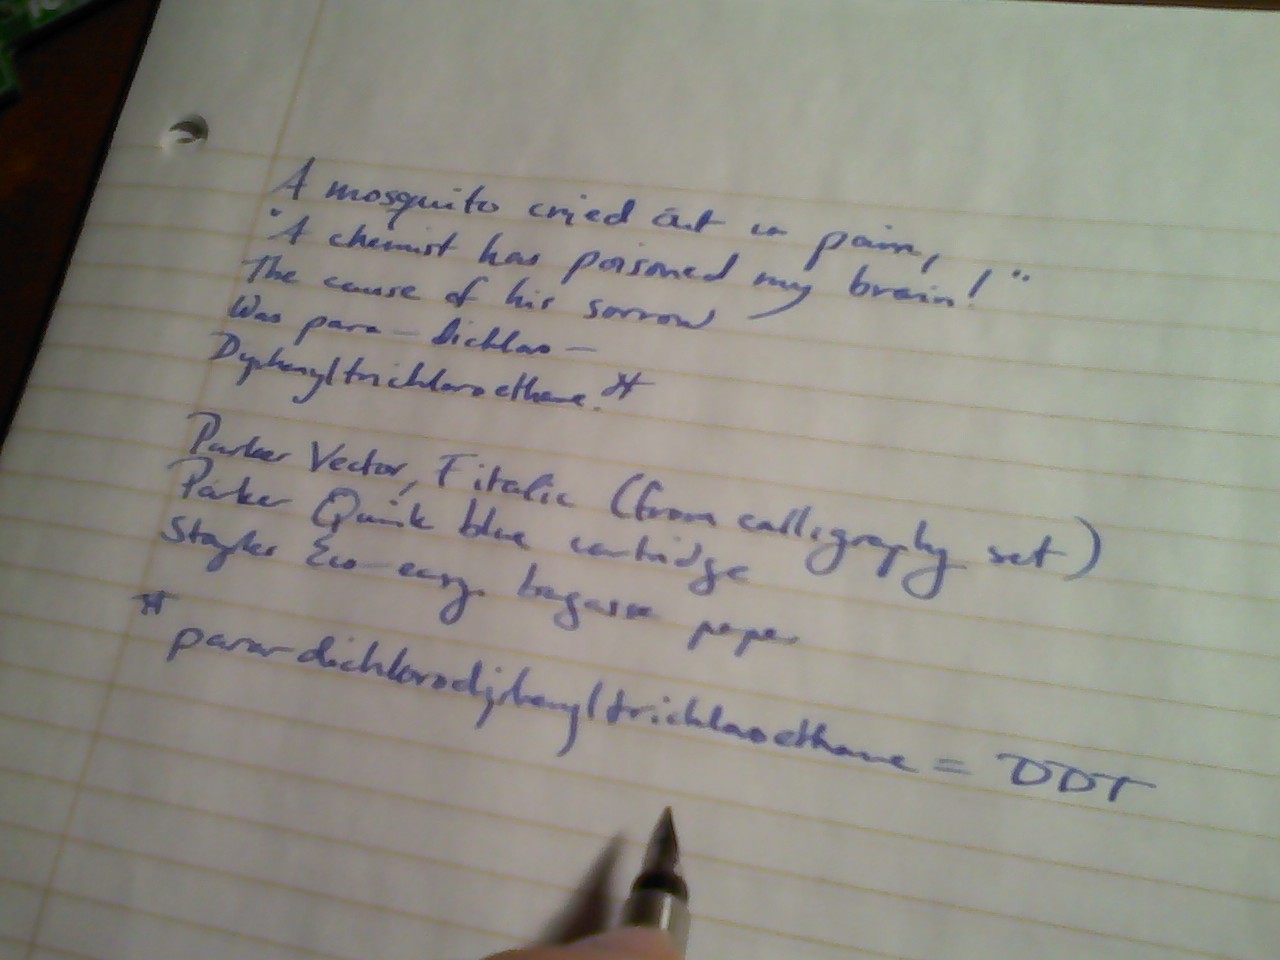 A mosquito cried out in pain,
"A chemist has poisoned my brain!"
The cause of his sorrow
Was para-dichloro-
Dyphenyltrichloroethane.*
Parker Vector, F italic (from calligraphy set)
Parker Quink blue cartridge
Staples Eco-easy bagasse paper
* para-dichlorodiphenyltrichloroethane = DDT